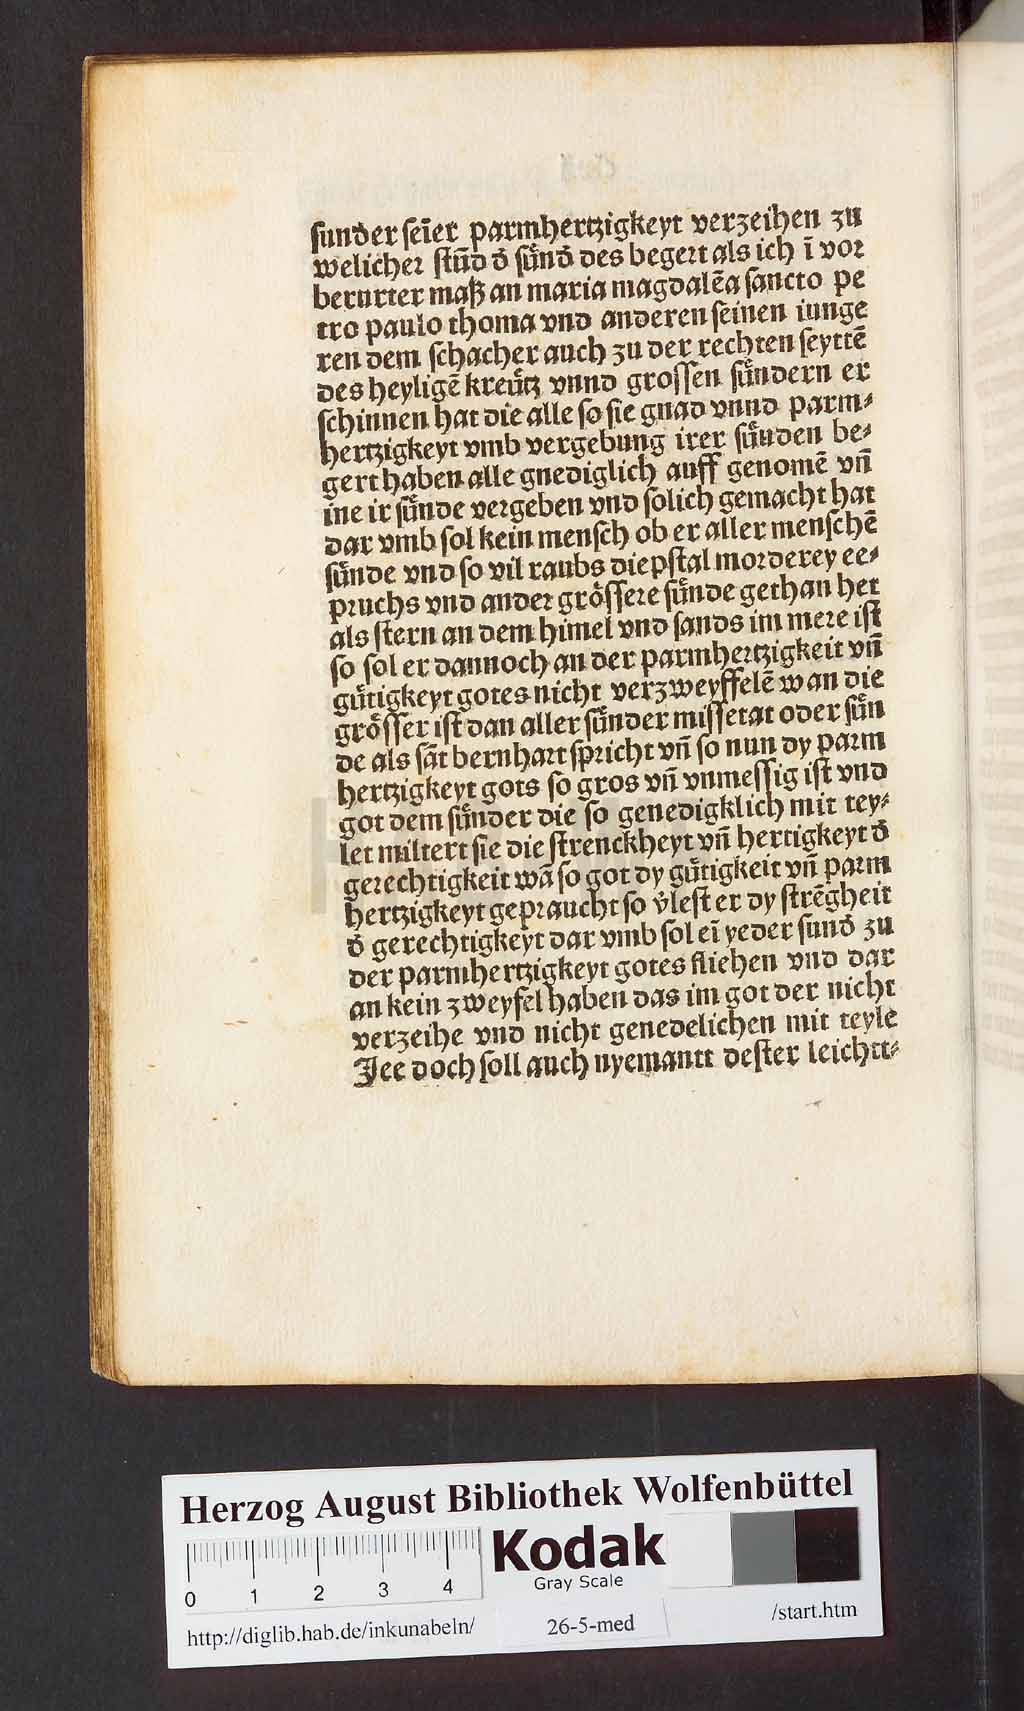 sunder seīer parmhertzigkeyt verzeihen zu
welicher stūd d̓ sünd̓ des begert als ich ī vor
berurter maß an maria magdalēa sancto pe
tro paulo thoma vnd anderen seinen iunge
ren dem schacher auch zu der rechten seyttē
des heyligē kreütz vnnd grossen sündern er
schinnen hat die alle so sie gnad vnnd parm⸗
hertzigkeyt vmb vergebung irer sünden be⸗
gert haben alle gnediglich auff genomē vn̄
ine ir sünde vergeben vnd solich gemacht hat
dar vmb sol kein mensch ob er aller menschē
sünde vnd so vil raubs diepstal morderey ee⸗
pruchs vnd ander grössere sünde gethan het
als stern an dem himel vnd sands im mere ist
so sol er dannoch an der parmhertzigkeit vn̄
gütigkeyt gotes nicht verzweyffelē wan die
grösser ist dan aller sünder missetat oder sün
de als sāt bernhart spricht vn̄ so nun dy parm
hertzigkeyt gots so gros vn̄ vnmessig ist vnd
got dem sünder die so genedigklich mit tey⸗
let miltert sie die strenckheyt vn̄ hertigkeyt d̓
gerechtigkeit wā so got dy gütigkeit vn̄ parm
hertzigkeyt gepraucht so v̓lest er dy strēgheit
d̓ gerechtigkeyt dar vmb sol eī yeder sund̓ zu
der parmhertzigkeyt gotes fliehen vnd dar
an kein zweyfel haben das im got der nicht
verzeihe vnd nicht genedelichen mit teyle
Jee doch soll auch nyemantt dester leichtt⸗
Herzog August Bibliothek Wolfenbüttel
0 1 2 3 4
Kodak
Gray Scale
http://diglib.hab.de/inkunabeln/
26-5-med
/start.htm